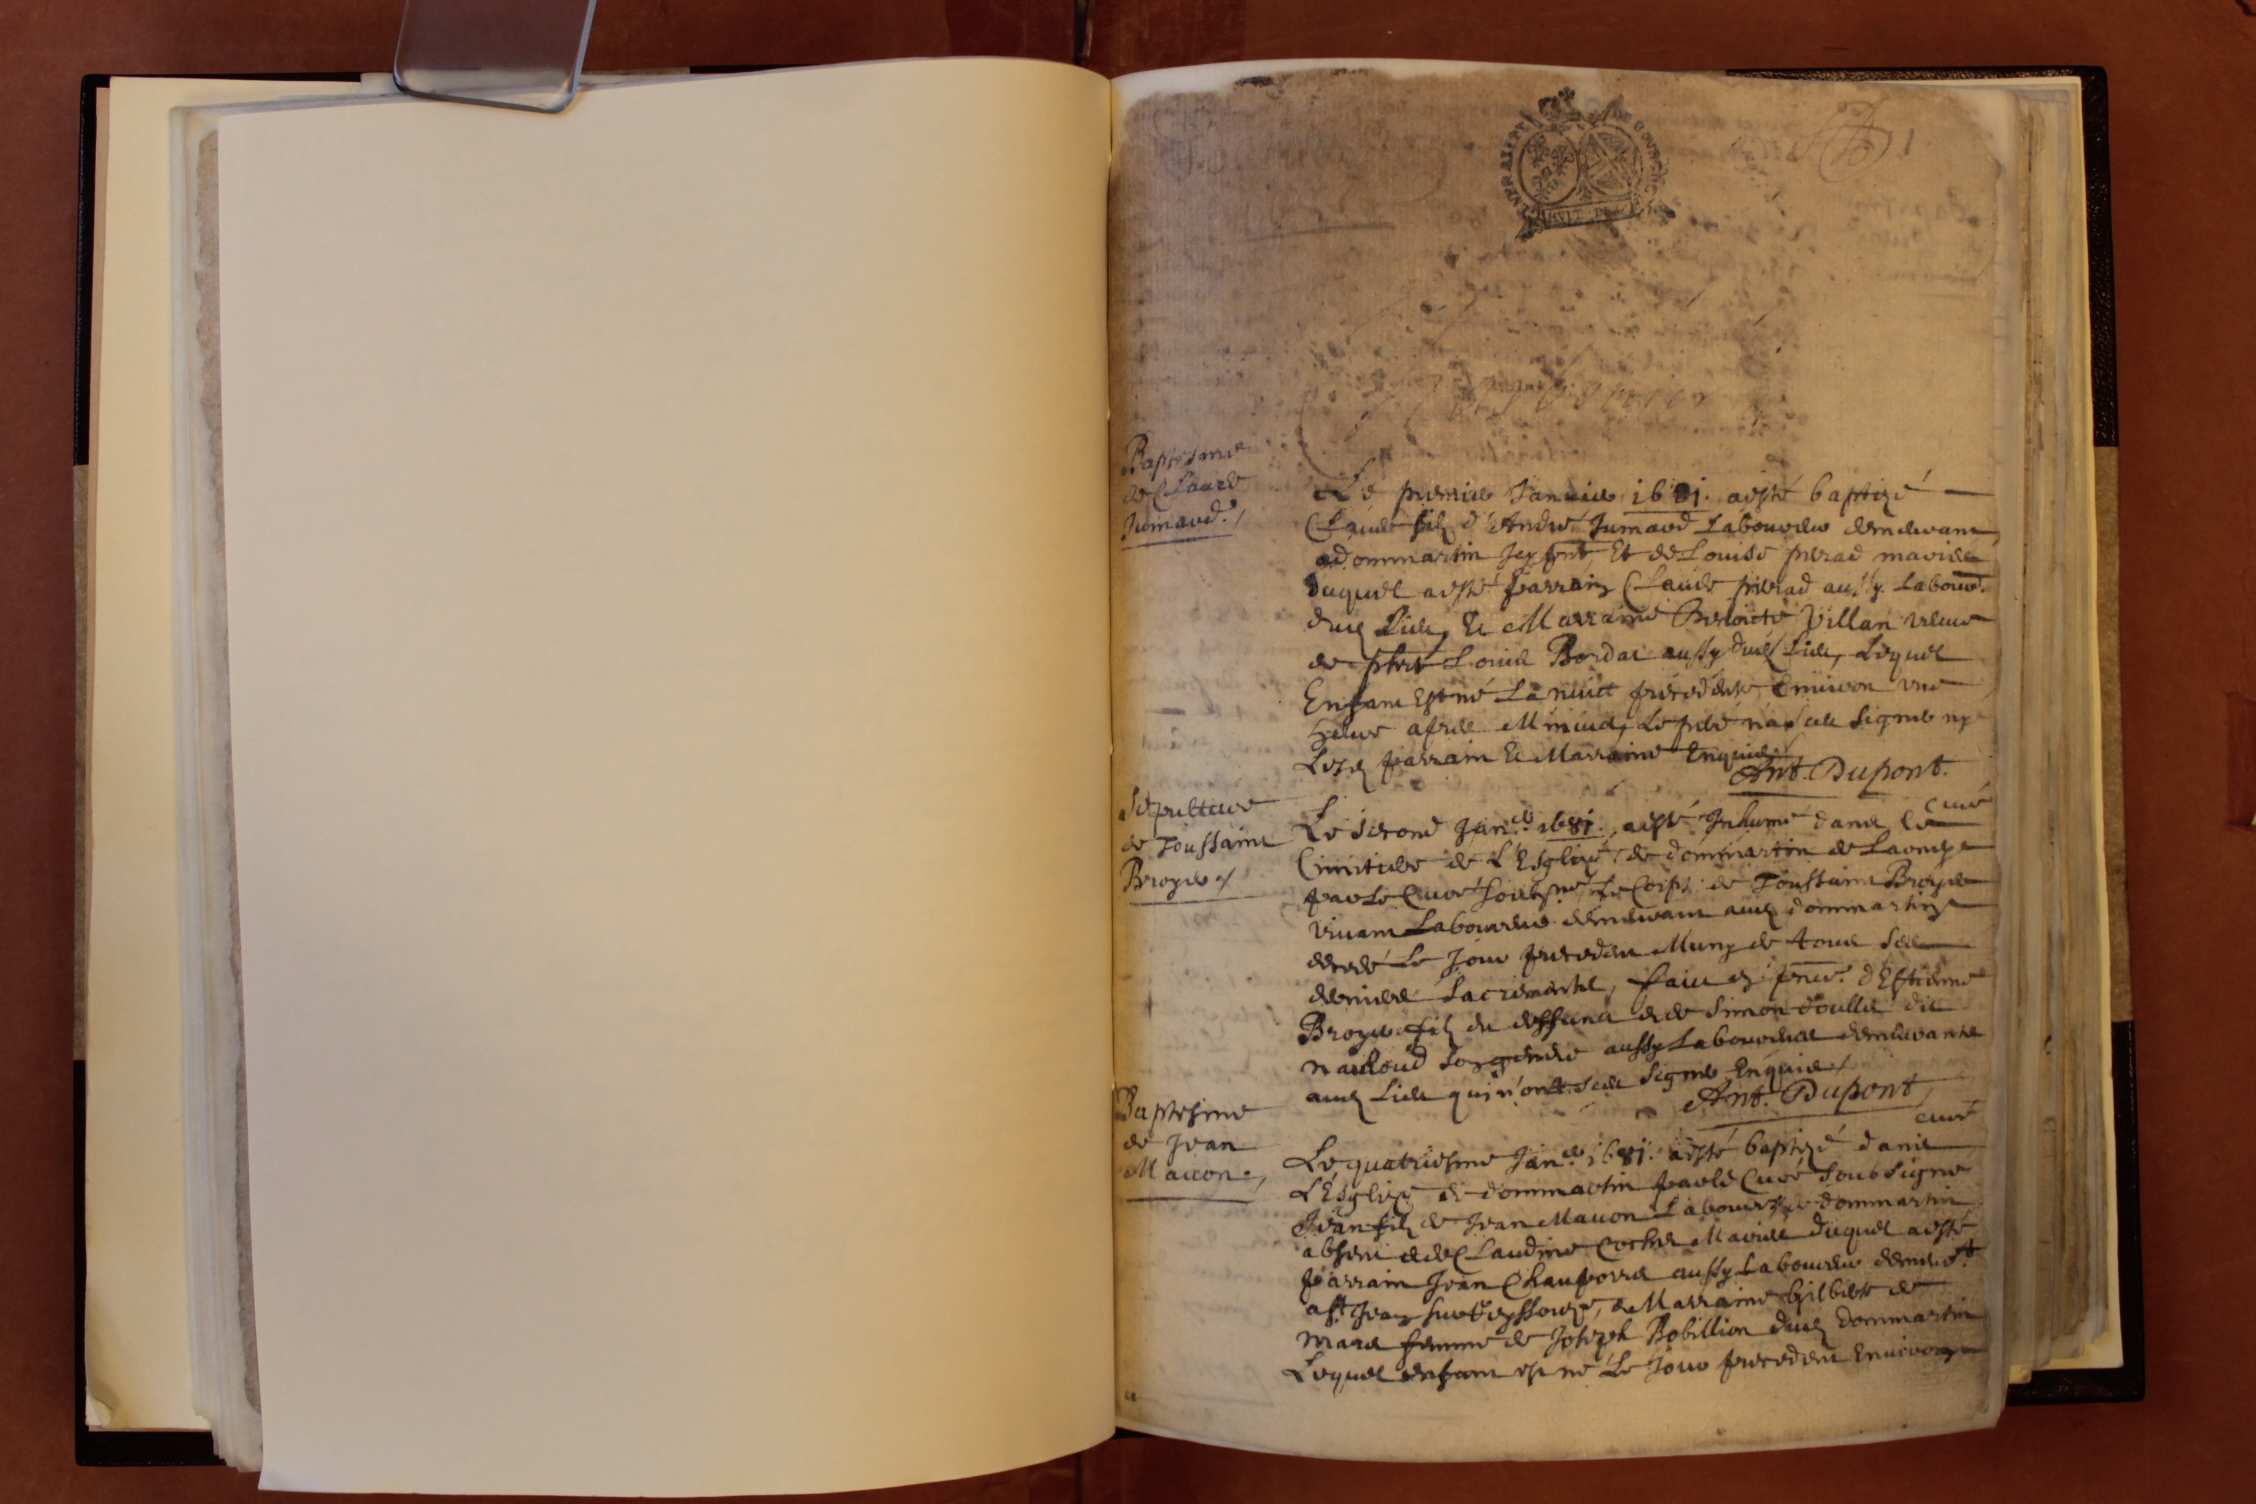 1
Baptesme
de Claude
Jumaud
Le premier Janvier 1681. a esté baptizé
Claude filz d'André Jumaud Laboureur demeurant
a dommartin Et de Louise pierad mariez
duquel a esté parrain Claude pierad aussy Labour.
dud lieu, et Marraine Benoicte Villan veuve
de Louis Bordat aussy dud lieu, Lequel
Enfant Est né La nuict precedente Environ une
heure apres Minuict, Le pere n'a sceu signer ny
Lesd parrain et Marraine Enquis
Ant. Dupont.
curé
Sepulture
de Toussaint
Broyer
Le second Jan.er 1681. a esté Inhumé dans le
Cimitiere de L'Esglize de dommartin de
par Le Curé soubs.né Le Corps de Toussaint Broyer
vivant Laboureur demeurant aud dommartin
decedé Le Jour precedent Muny de tous ses
derniers Sacrements, faict en d'Estienne
Broyer filz du deffunct et de Simon doulle dit
son gendre aussy Laboureurs demeurants
aud Lieu qui n'ont sceu signer Enquis
Ant. Dupont
curé
Baptesme
de Jean
Macon
Le quatriesme Jan.er 1681. a esté baptizé dans
L'Esglize de dommartin par le Curé Soubsigné
Jean filz de Jean Macon Labour.r de dommartin
absent et de Claudine Cochet Mariez duquel a esté
parrain Jean aussy Laboureur demeur.t
a St Jean sur, et Marraine Gilbete de
femme de Joseph Robillion dud dommartin
Lequel enfant est né Le Jour precedent Environ